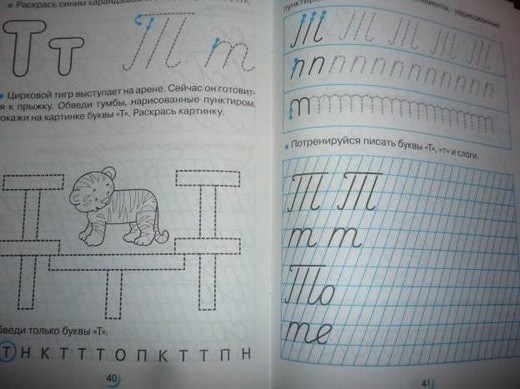 Раскрась синим
Т т Т т
Цирковой тигр выступает на арене. Сейчас он готовит-
ся к прыжку. Обведи тумбы, нарисованные пунктиром.
Покажи на картинке буквы «Т». Раскрась картинку.
Обведи только буквы «Т».
Т Н К Т Т Т О П К Т Т П Н
40
нарисованные
Потренируйся писать буквы «Т», «т» и слоги.
Т Т
т т
То
те
41